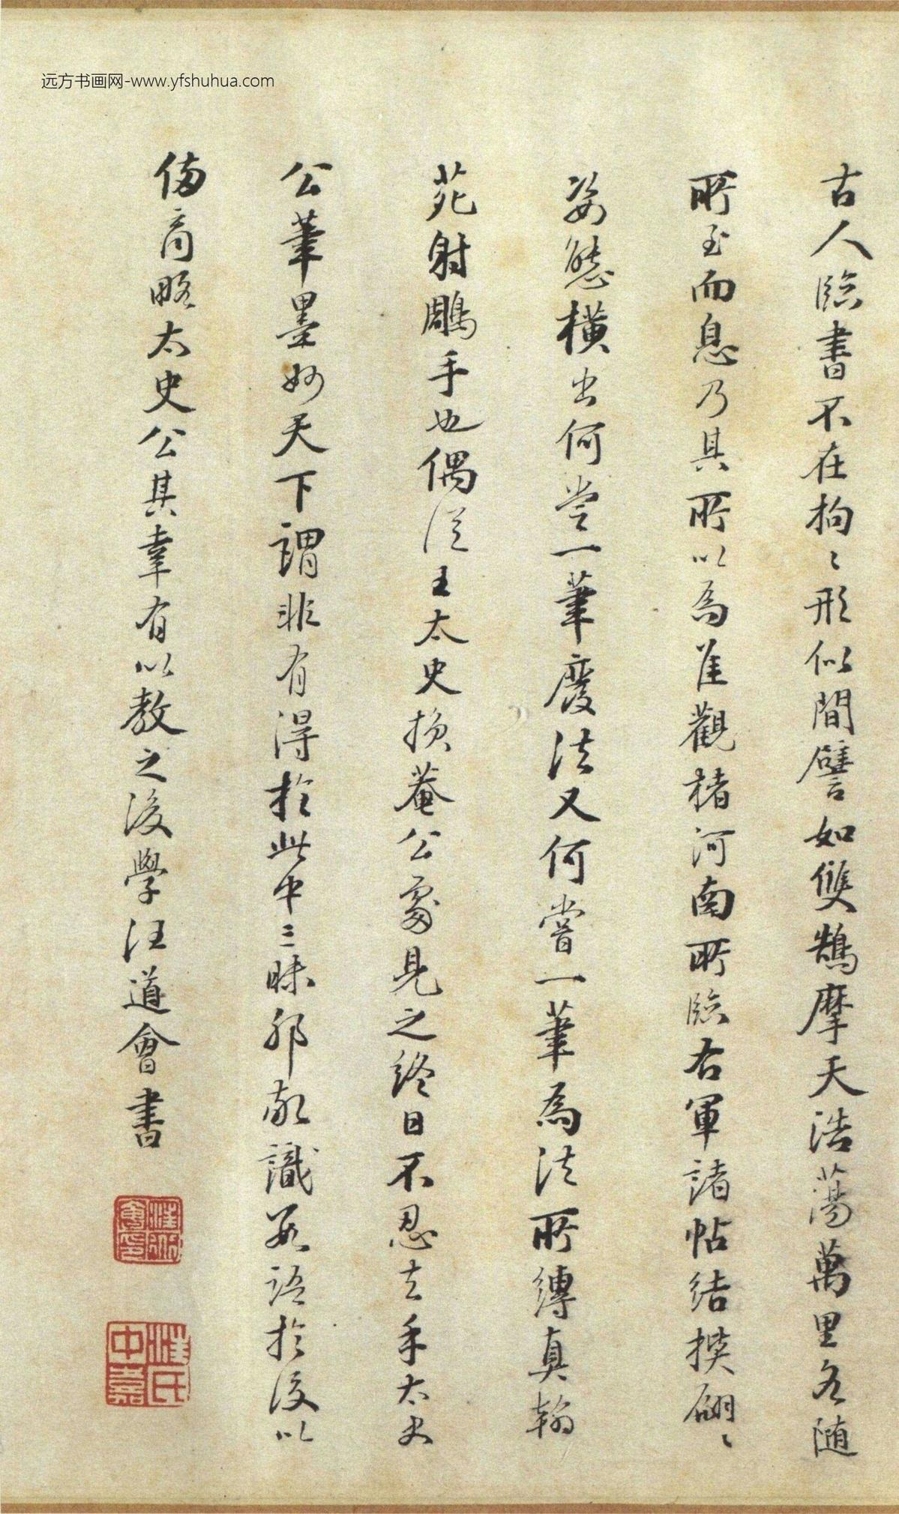 远方书画网-www.yfshuhua.com
古人臨書不在拘〻形似間譬如雙鵠摩天浩蕩萬里各随
所至而息乃其所以為佳觀楮河南所臨右軍諸帖結撰翩〻
姿態橫出何嘗一筆廢法又何嘗一筆為法所縛真翰
苑射鵰手也偶従王太史損菴公處見之終日不忍去手太史
公筆墨妙天下謂非有得於此中三昧邪敬識數語於後以
俻商略太史公其幸有以教之後學汪道會書
汪氏
中嘉